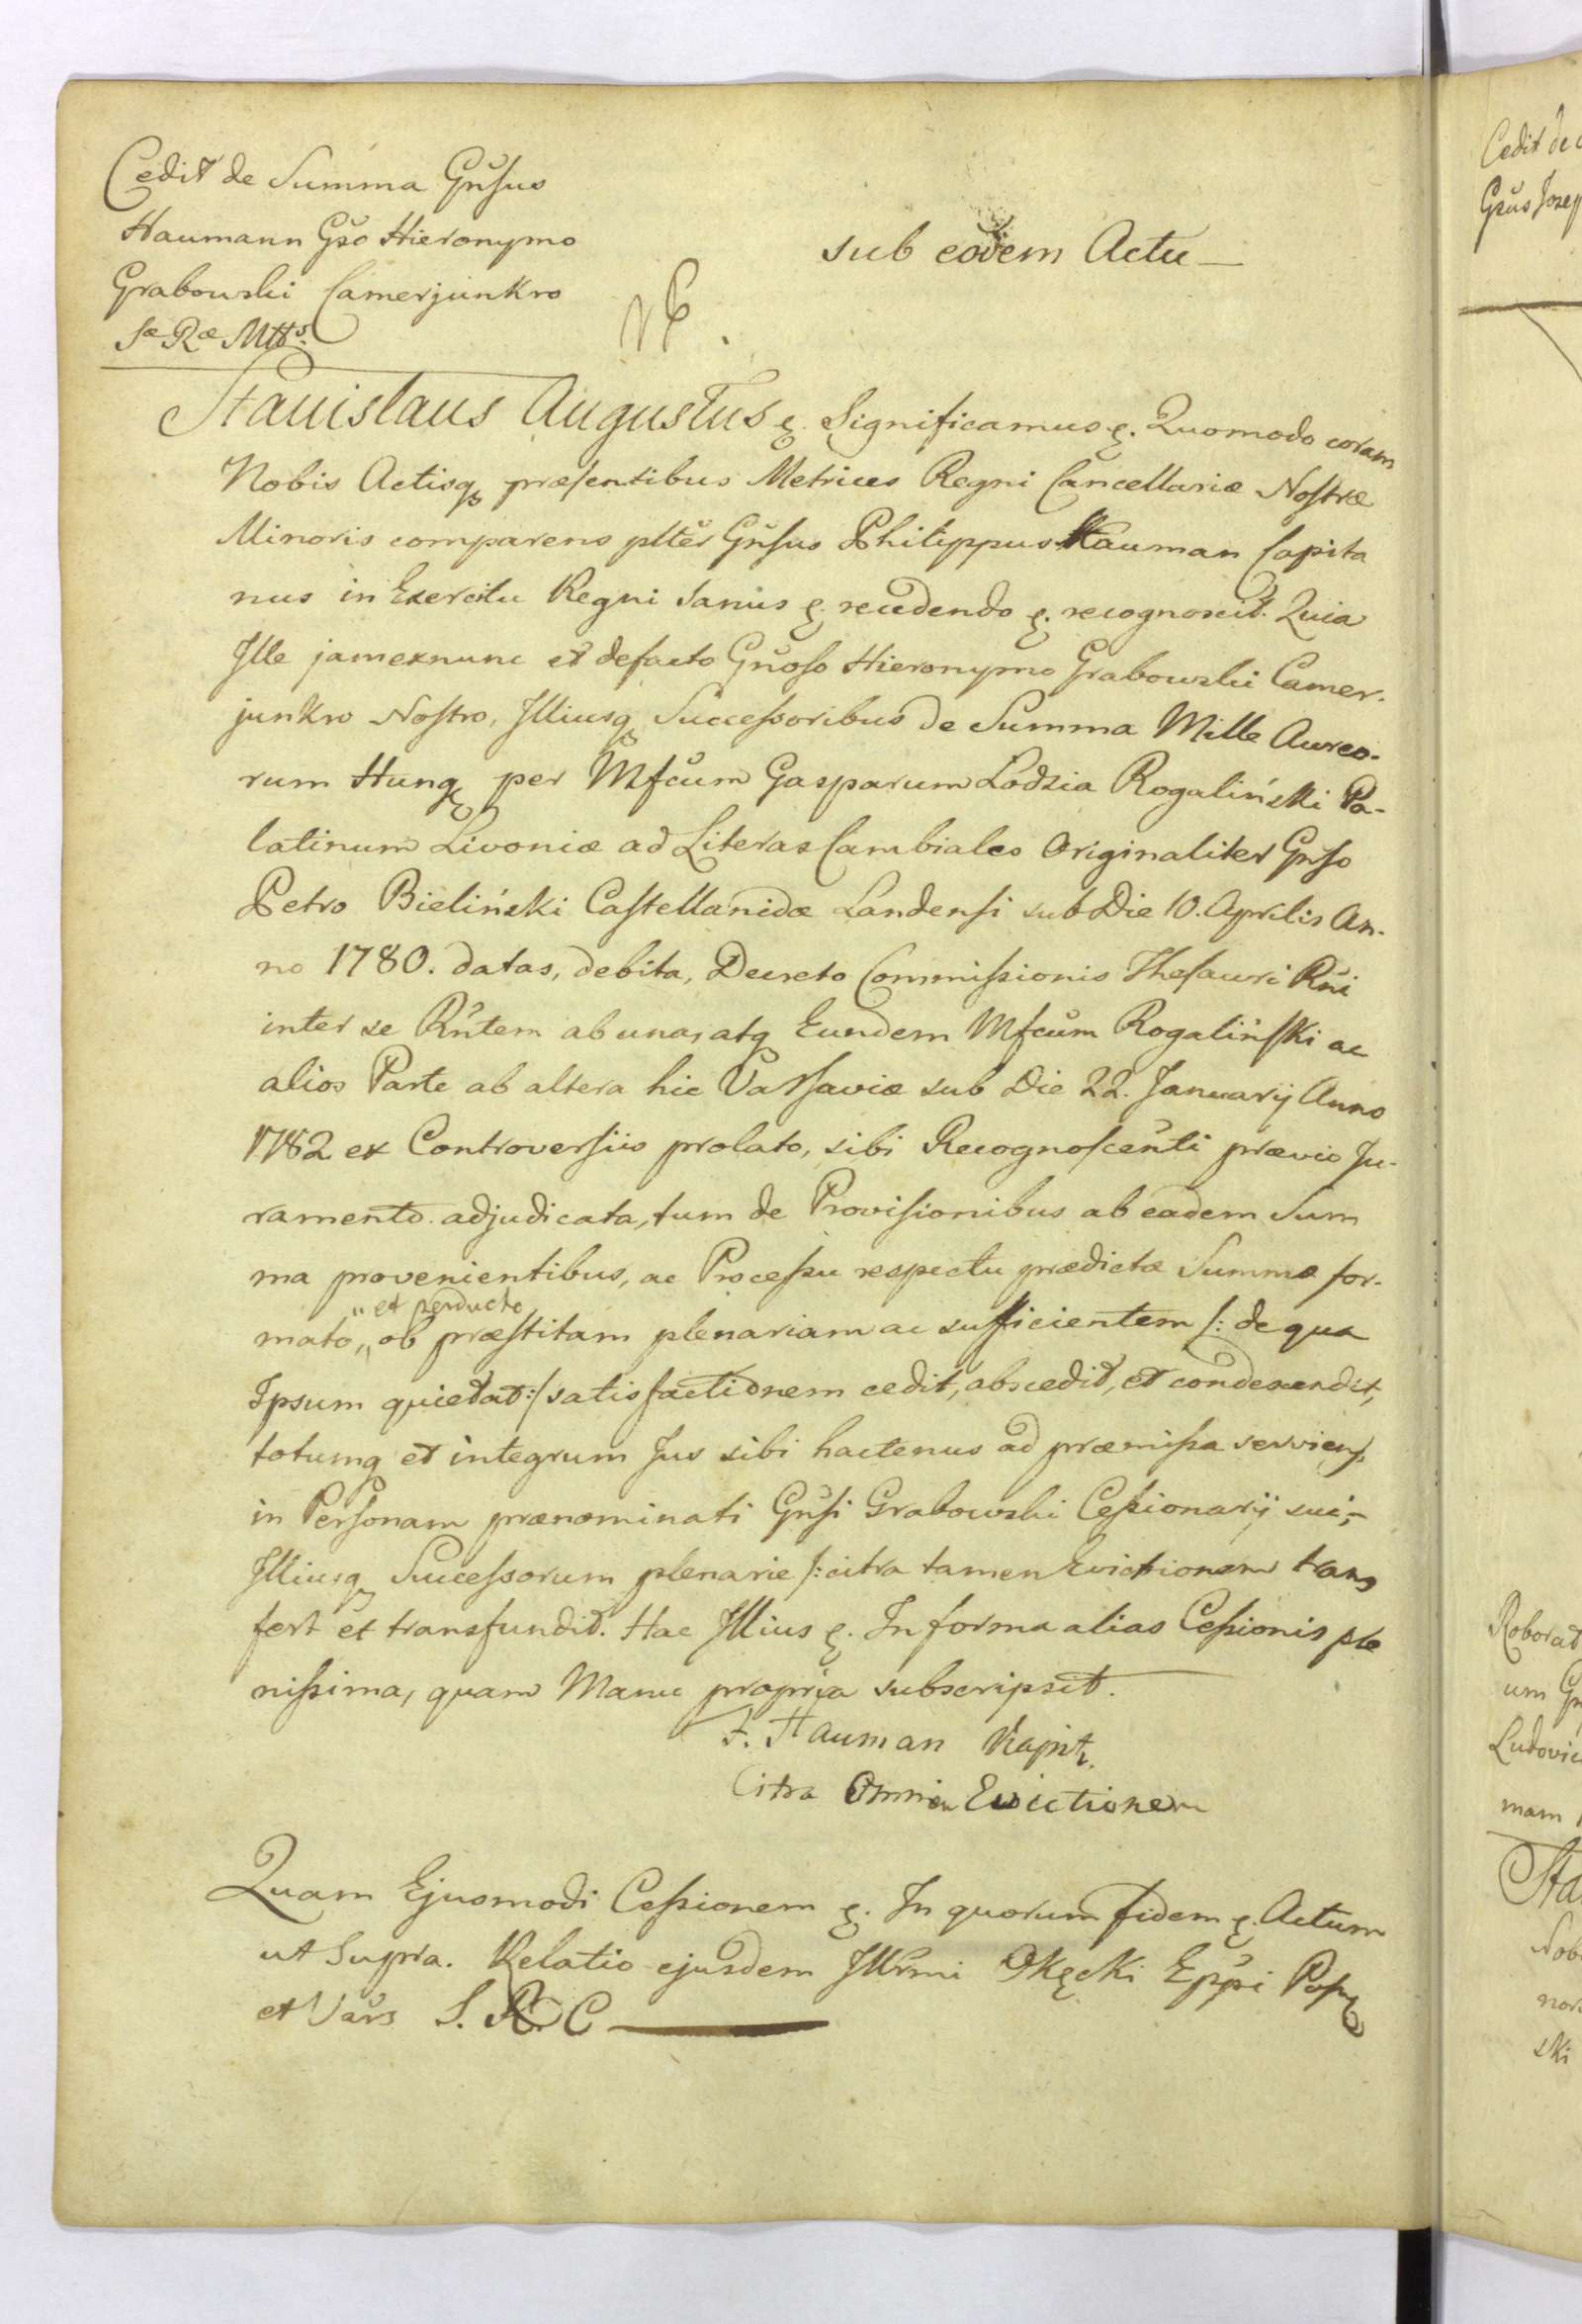 Cedit de Summa Gnsus
Haumann Gso Hieronymo
Grabowski Camerjunkro
Sæ Ræ Mtts.
sub eodem Actu —
Stanislaus Augustus &. Significamus &. Quomodo coram
Nobis Actisq præsentibus Metrices Regni Cancellariæ Nostræ
Minoris comparens plter Gnsus Philippus Hauman Capita
nus in Exercitu Regni Sanus &. recedendo &. recognoscit. Quia
Ille jamexnunc et defacto Gnoso Hieronymo Grabowski Camer-
junkro Nostro, Illiusq Successoribus de Summa Mille Aureo-
rum Hung per Mfcum Gasparum Lodzia Rogaliński Pa-
latinum Livoniæ ad Literas Cambiales Originaliter Gnso
Petro Bieliński Castellanidæ Landensi sub Die 10. Aprilis An-
no 1780. datas, debita, Decreto Commissionis Thesauri Rni
inter se Rntem ab una, atq Eundem Mfcum Rogaliński ac
alios Parte ab altera hic Varsaviæ sub Die 22. Januarij Anno
1782 ex Controversiis prolato, sibi Recognoscenti prævio Ju-
ramento adjudicata, tum de Provisionibus ab eadem Sum
ma provenientibus, ac Processu respectu prædictæ Summæ for-
" et perducto
mato „ ob præstitam plenariam ac sufficientem /: de qua
Ipsum quietat :/ satisfactionem cedit, abscedit, et condescendit,
totumq et integrum Jus sibi hactenus ad præmissa serviens,
in Personam prænominati Gnsi Grabowski Cessionarij sui,-
Illiusq Successorum plenarie /: citra tamen Evictionem trans
fert et transfundit. Hac Illius &. In forma alias Cessionis ple
nissima, quam Manu propria subscripsit.
F. Hauman Kapit.
Citra Omnem Evictionem
Quam Ejusmodi Cessionem &. In quorum fidem &. Actum
ut Supra. Relatio ejusdem Illrmi Okęcki Eppi Posn
et Vars S. R. C —
Cedit de
Gsus Josep
Roborat
um Gn
Ludovic
mam
Sta
Nob
nor
ski